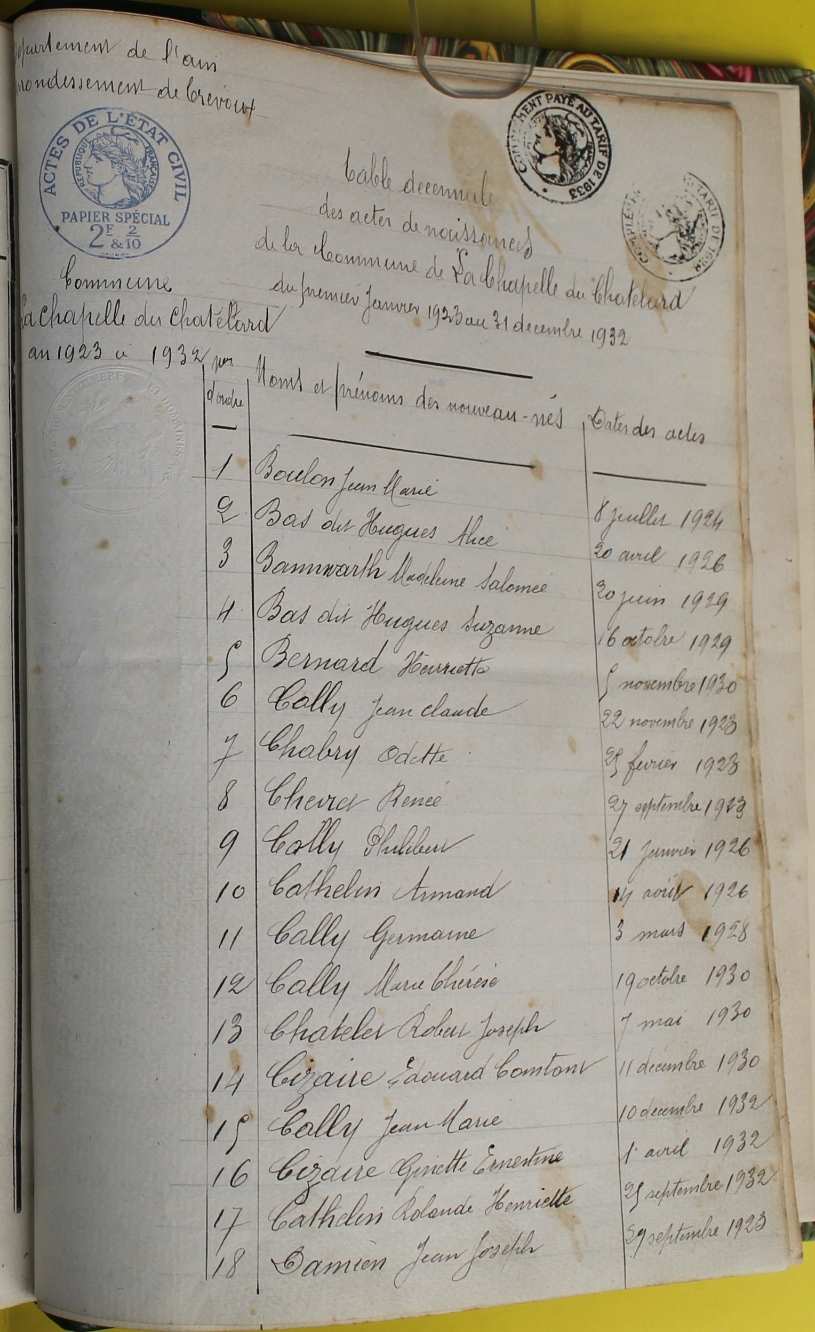 epartement de l'ain
rrondissement de Trévoux
ACTES DE L'ÉTAT CIVIL
RÉPUBLIQUE FRANÇAISE
PAPIER SPÉCIAL
2F 2/10
& 10
COMPLÉMENT PAYÉ AU TARIF DE 1933
Table decennale
des actes de naissances
de la Commune de La Chapelle du Chatelard
du premier Janvier 1923 au 31 decembre 1932
Commune
La Chapelle du Chatélard
an 1923 à 1932
d'ordre
Noms et prénoms des nouveau-nés
Dates des actes
1 Boulon Jean Marie 8 juillet 1924
2 Bas dit Hugues Alice 20 avril 1926
3 Bannwarth Madeleine Salomée 20 juin 1929
4 Bas dit Hugues Suzanne 16 octobre 1929
5 Bernard Henriette 5 novembre 1930
6 Cally Jean claude 22 novembre 1923
7 Chabry Odette 25 fevrier 1923
8 Renée 27 septembre 1923
9 Cally Philibert 21 Janvier 1926
10 Cathelin Armand 14 août 1926
11 Cally Germaine 3 mars 1928
12 Cally Marie Thérèse 19 octobre 1930
13 Chatelet Robert Joseph 7 mai 1930
14 Cizaire Edouard Constant 11 decembre 1930
15 Cally Jean Marie 10 decembre 1932
16 Cizaire Ginette Ernestine 1 avril 1932
17 Cathelin Rolande Henriette 25 septembre 1932
18 Damien Jean Joseph 29 septembre 1923